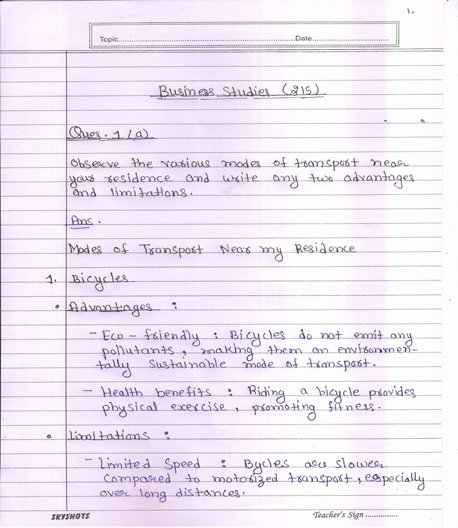 1.
Topic..............................Date..............................
Business Studies (215)
Ques. 1 (a)
Observe the various modes of transport near
your residence and write any two advantages
and limitations.
Ans.
Modes of Transport Near my Residence
1. Bicycles
• Advantages :
- Eco-friendly : Bicycles do not emit any
pollutants, making them an environmen-
tally sustainable mode of transport.
- Health benefits : Riding a bicycle provides
physical exercise, promoting fitness.
• Limitations :
- Limited Speed : Bycles are slower
compared to motorized transport, especially
over long distances.
SKYSHOTS Teacher's Sign ...............